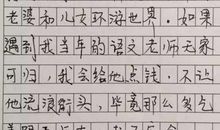 老婆和儿女环游世界。如果
遇到我当年的语文老师无家
可归，我会给他点钱，不让
他流浪街头，毕竟那么多年